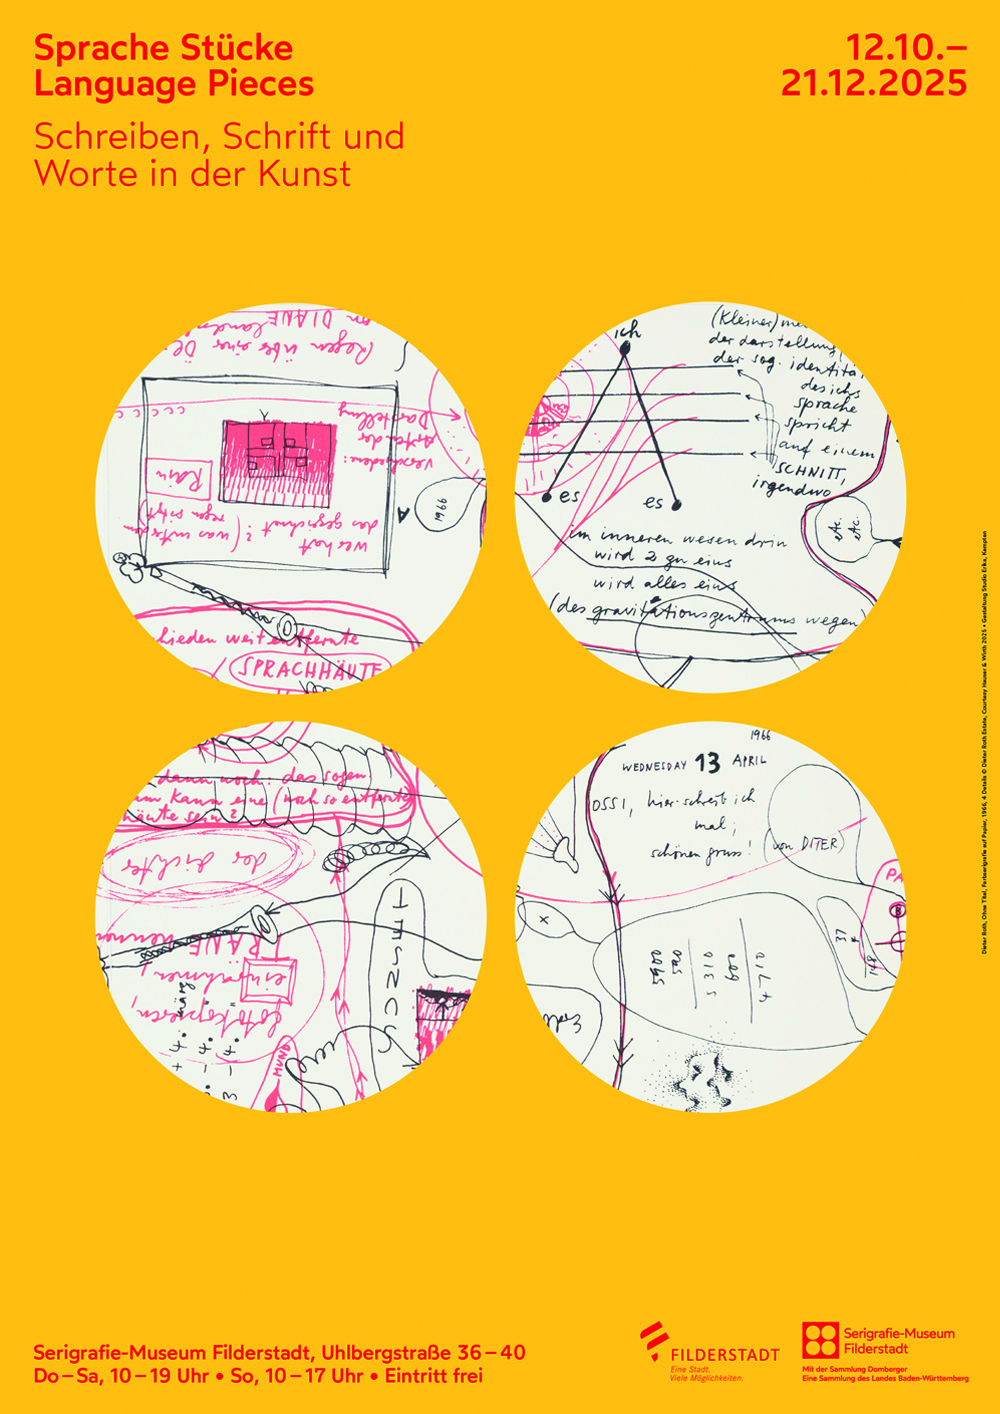 Sprache Stücke
Language Pieces
Schreiben, Schrift und
Worte in der Kunst
12.10.–
21.12.2025
Regen über einer
DIANE
Darstellung
Rain
wer hat
das gezeichnet? (was
1966
A
lieden weit entfernte
SPRACHHÄUTE
ich
es
es
(Kleiner)
der darstellung
der sog. identitä
des ichs
sprache
spricht
auf einem
SCHNITT,
irgendwo
etc.
etc.
im inneren wesen drin
wird 2 zu eins
wird alles eins
(des gravitationszentrums wegen)
dann noch: das sogen
um, kann eine (noch so entfernte
häute sein?
der dichter
einrahmen,
fotokopieren,
MUND
1966
WEDNESDAY 13 APRIL
OSSI, hier schreib ich
mal;
schönen gruss! (von DITER)
PA
x
5900
590
5310
600
4710
37
148
Serigrafie-Museum Filderstadt, Uhlbergstraße 36–40
Do–Sa, 10–19 Uhr • So, 10–17 Uhr • Eintritt frei
FILDERSTADT
Eine Stadt.
Viele Möglichkeiten.
Serigrafie-Museum
Filderstadt
Mit der Sammlung Domberger
Eine Sammlung des Landes Baden-Württemberg
Dieter Roth, Ohne Titel, Farbserigrafie auf Papier, 1966, 4 Details © Dieter Roth Estate, Courtesy Hauser & Wirth 2025 • Gestaltung Studio Erika, Kempten